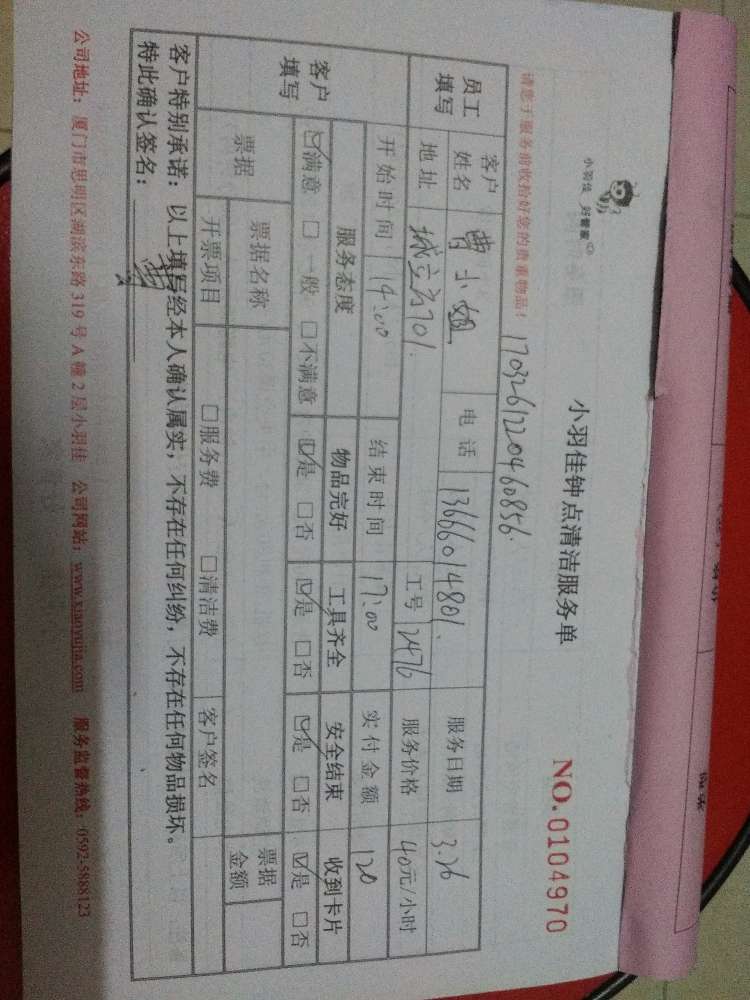 小羽佳 好管家
小羽佳钟点清洁服务单
NO.0104970
请您于服务前收拾好您的贵重物品!
170326122046 0856.
员工填写 客户姓名 曹小姐 电话 13666014801. 服务日期 3.26
地址 701. 工号 2476 服务价格 40元/小时
客户填写 开始时间 14:00 结束时间 17:00 实付金额 120
服务态度 物品完好 工具齐全 安全结束 收到卡片
☑满意 □一般 □不满意 ☑是 □否 ☑是 □否 ☑是 □否 ☑是 □否
票据 票据名称 票据金额
开票项目 □服务费 □清洁费 客户签名
客户特别承诺:以上填写经本人确认属实,不存在任何纠纷,不存在任何物品损坏。
特此确认签名:
公司地址:厦门市思明区湖滨东路319号A幢2层小羽佳 公司网站:www.xiaoyujia.com 服务监督热线:0592-5888123